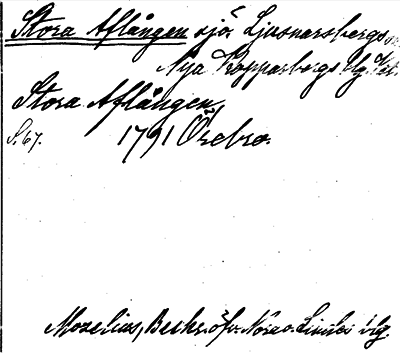 Stora Aflången sjö. Ljusnarsbergs
Nya Kopparbergs
Stora Aflången,
S. 67. 1791 Örebro.
Mozelius, Beskr. öfv. Nora o. Linde